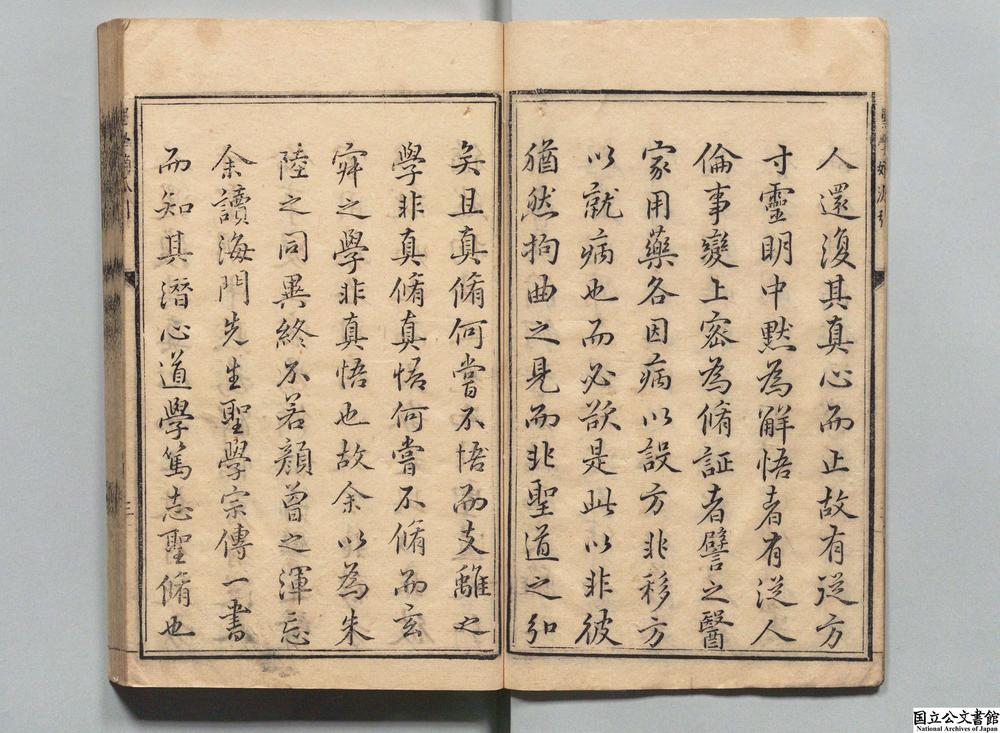 人還復其真心而止故有從方
寸靈明中默為解悟者有從人
倫事變上密為脩証者譬之醫
家用藥各因病以設方非移方
以就病也而必欲是此以非彼
猶然拘曲之見而非聖道之弘
矣且真脩何嘗不悟而支離之
學非真脩真悟何嘗不脩而玄
寂之學非真悟也故余以為朱
陸之同異終不若顏曾之渾忘
余讀海門先生聖學宗傳一書
而知其潛心道學篤志聖脩也
三
国立公文書館
National Archives of Japan